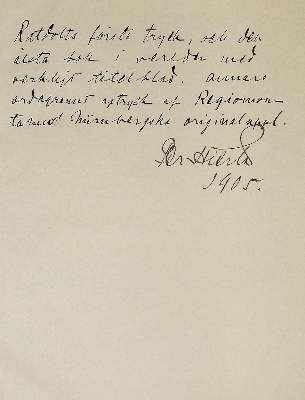 Ratdolts första tryck, och den
älsta bok i världen med
verkligt titelblad. Annars
ordagrannt aftryck af Regiomon-
tanus' Nürnbergska originaluppl.
Per Hierta
1905.